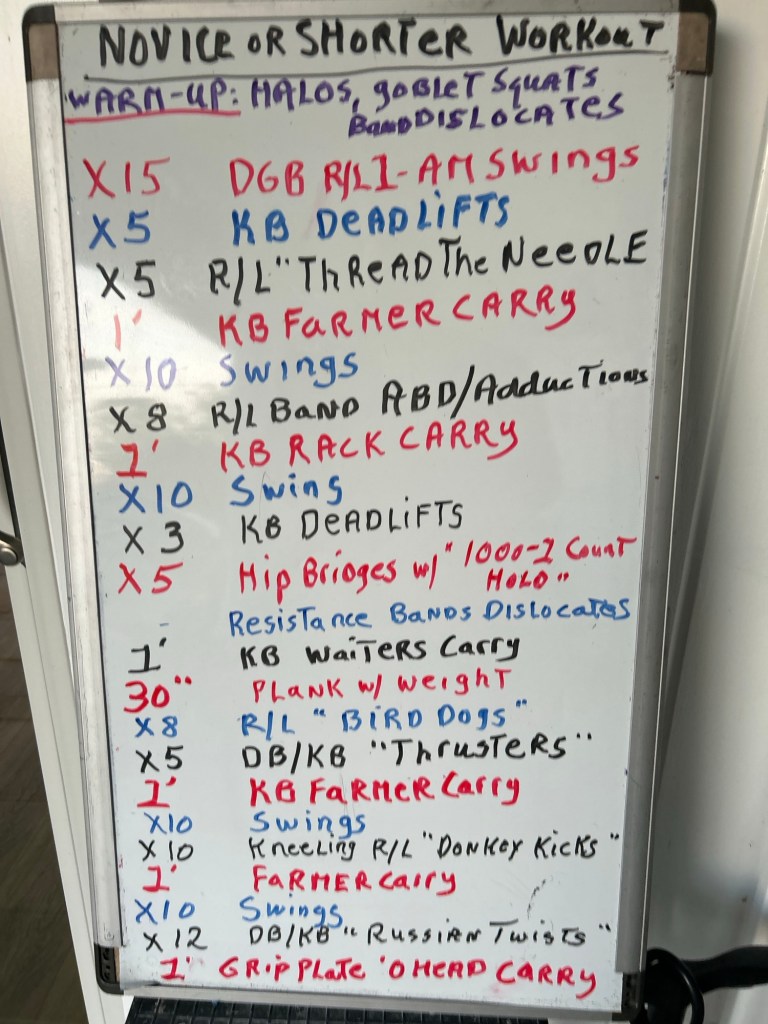 NOVICE OR SHORTER WORKOUT
WARM-UP: HALOS, GOBLET SQUATS
BAND DISLOCATES
X15 DGB R/L 1-AM SWINGS
X5 KB DEADLIFTS
X5 R/L "THREAD THE NEEDLE
1' KB FARMER CARRY
X10 SWINGS
X8 R/L BAND ABD/ADDUCTIONS
1' KB RACK CARRY
X10 SWING
X3 KB DEADLIFTS
X5 HIP BRIDGES W/ "1000-1 COUNT
HOLD"
- RESISTANCE BANDS DISLOCATES
1' KB WAITERS CARRY
30" PLANK W/ WEIGHT
X8 R/L "BIRD DOGS"
X5 DB/KB "THRUSTERS"
1' KB FARMER CARRY
X10 SWINGS
X10 KNEELING R/L "DONKEY KICKS"
1' FARMER CARRY
X10 SWINGS
X12 DB/KB "RUSSIAN TWISTS"
1' GRIP PLATE 'O HEAD CARRY